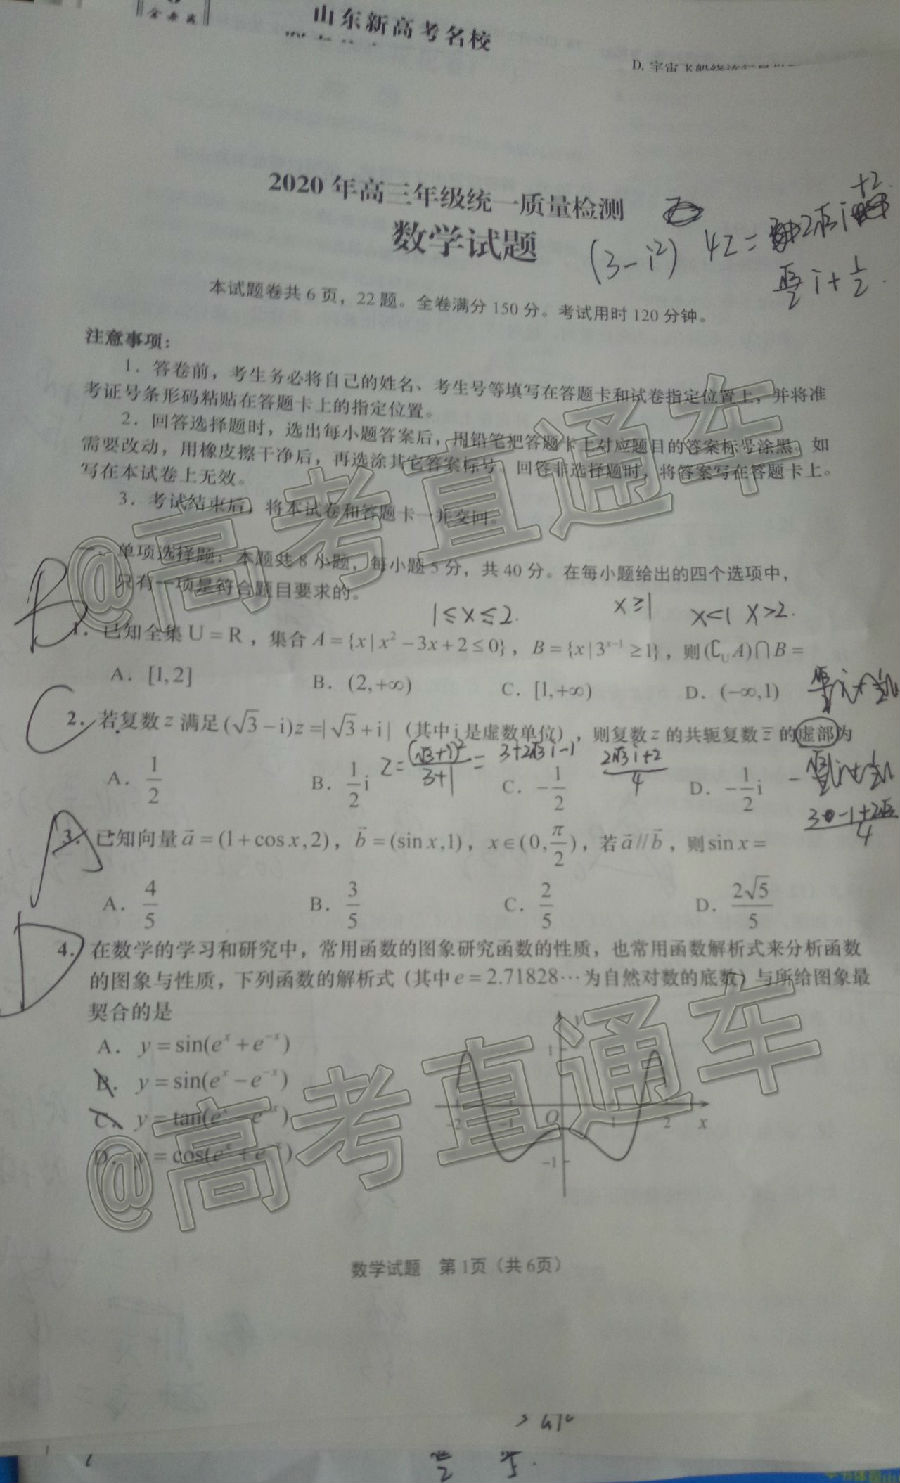 山东新高考名校
2020年高三年级统一质量检测
数学试题
(3-i²) 4z=
+2
√3/2 i+1/2.
本试题卷共6页，22题。全卷满分150分。考试用时120分钟。
注意事项：
1．答卷前，考生务必将自己的姓名、考生号等填写在答题卡和试卷指定位置上，并将准
考证号条形码粘贴在答题卡上的指定位置。
2．回答选择题时，选出每小题答案后，用铅笔把答题卡上对应题目的答案标号涂黑。如
需要改动，用橡皮擦干净后，再选涂其它答案标号。回答非选择题时，将答案写在答题卡上。
写在本试卷上无效。
3．考试结束后，将本试卷和答题卡一并交回。
一、单项选择题：本题共8小题，每小题5分，共40分。在每小题给出的四个选项中，
只有一项是符合题目要求的。
1≤x≤2. x≥1 x<1 x>2.
B
1．已知全集U=R，集合A={x|x²-3x+2≤0}，B={x|3ˣ⁻¹≥1}，则(∁ᵤA)∩B=
A．[1,2] B．(2,+∞) C．[1,+∞) D．(-∞,1)
C
2．若复数z满足(√3-i)z=|√3+i|（其中i是虚数单位），则复数z的共轭复数z̄的虚部为
z=(√3+i)²/3+1=3+2√3i-1 2√3i+2/4
A．1/2 B．1/2 i C．-1/2 D．-1/2 i
A
3．已知向量a⃗=(1+cos x,2)，b⃗=(sin x,1)，x∈(0,π/2)，若a⃗//b⃗，则sin x=
A．4/5 B．3/5 C．2/5 D．2√5/5
D
4．在数学的学习和研究中，常用函数的图象研究函数的性质，也常用函数解析式来分析函数
的图象与性质，下列函数的解析式（其中e=2.71828⋯为自然对数的底数）与所给图象最
契合的是
A．y=sin(eˣ+e⁻ˣ)
B．y=sin(eˣ-e⁻ˣ)
C．y=tan(eˣ-e⁻ˣ)
D．y=cos(eˣ+e⁻ˣ)
y
1
-2 -1 O 1 2 x
-1
数学试题 第1页（共6页）
@高考直通车
@高考直通车